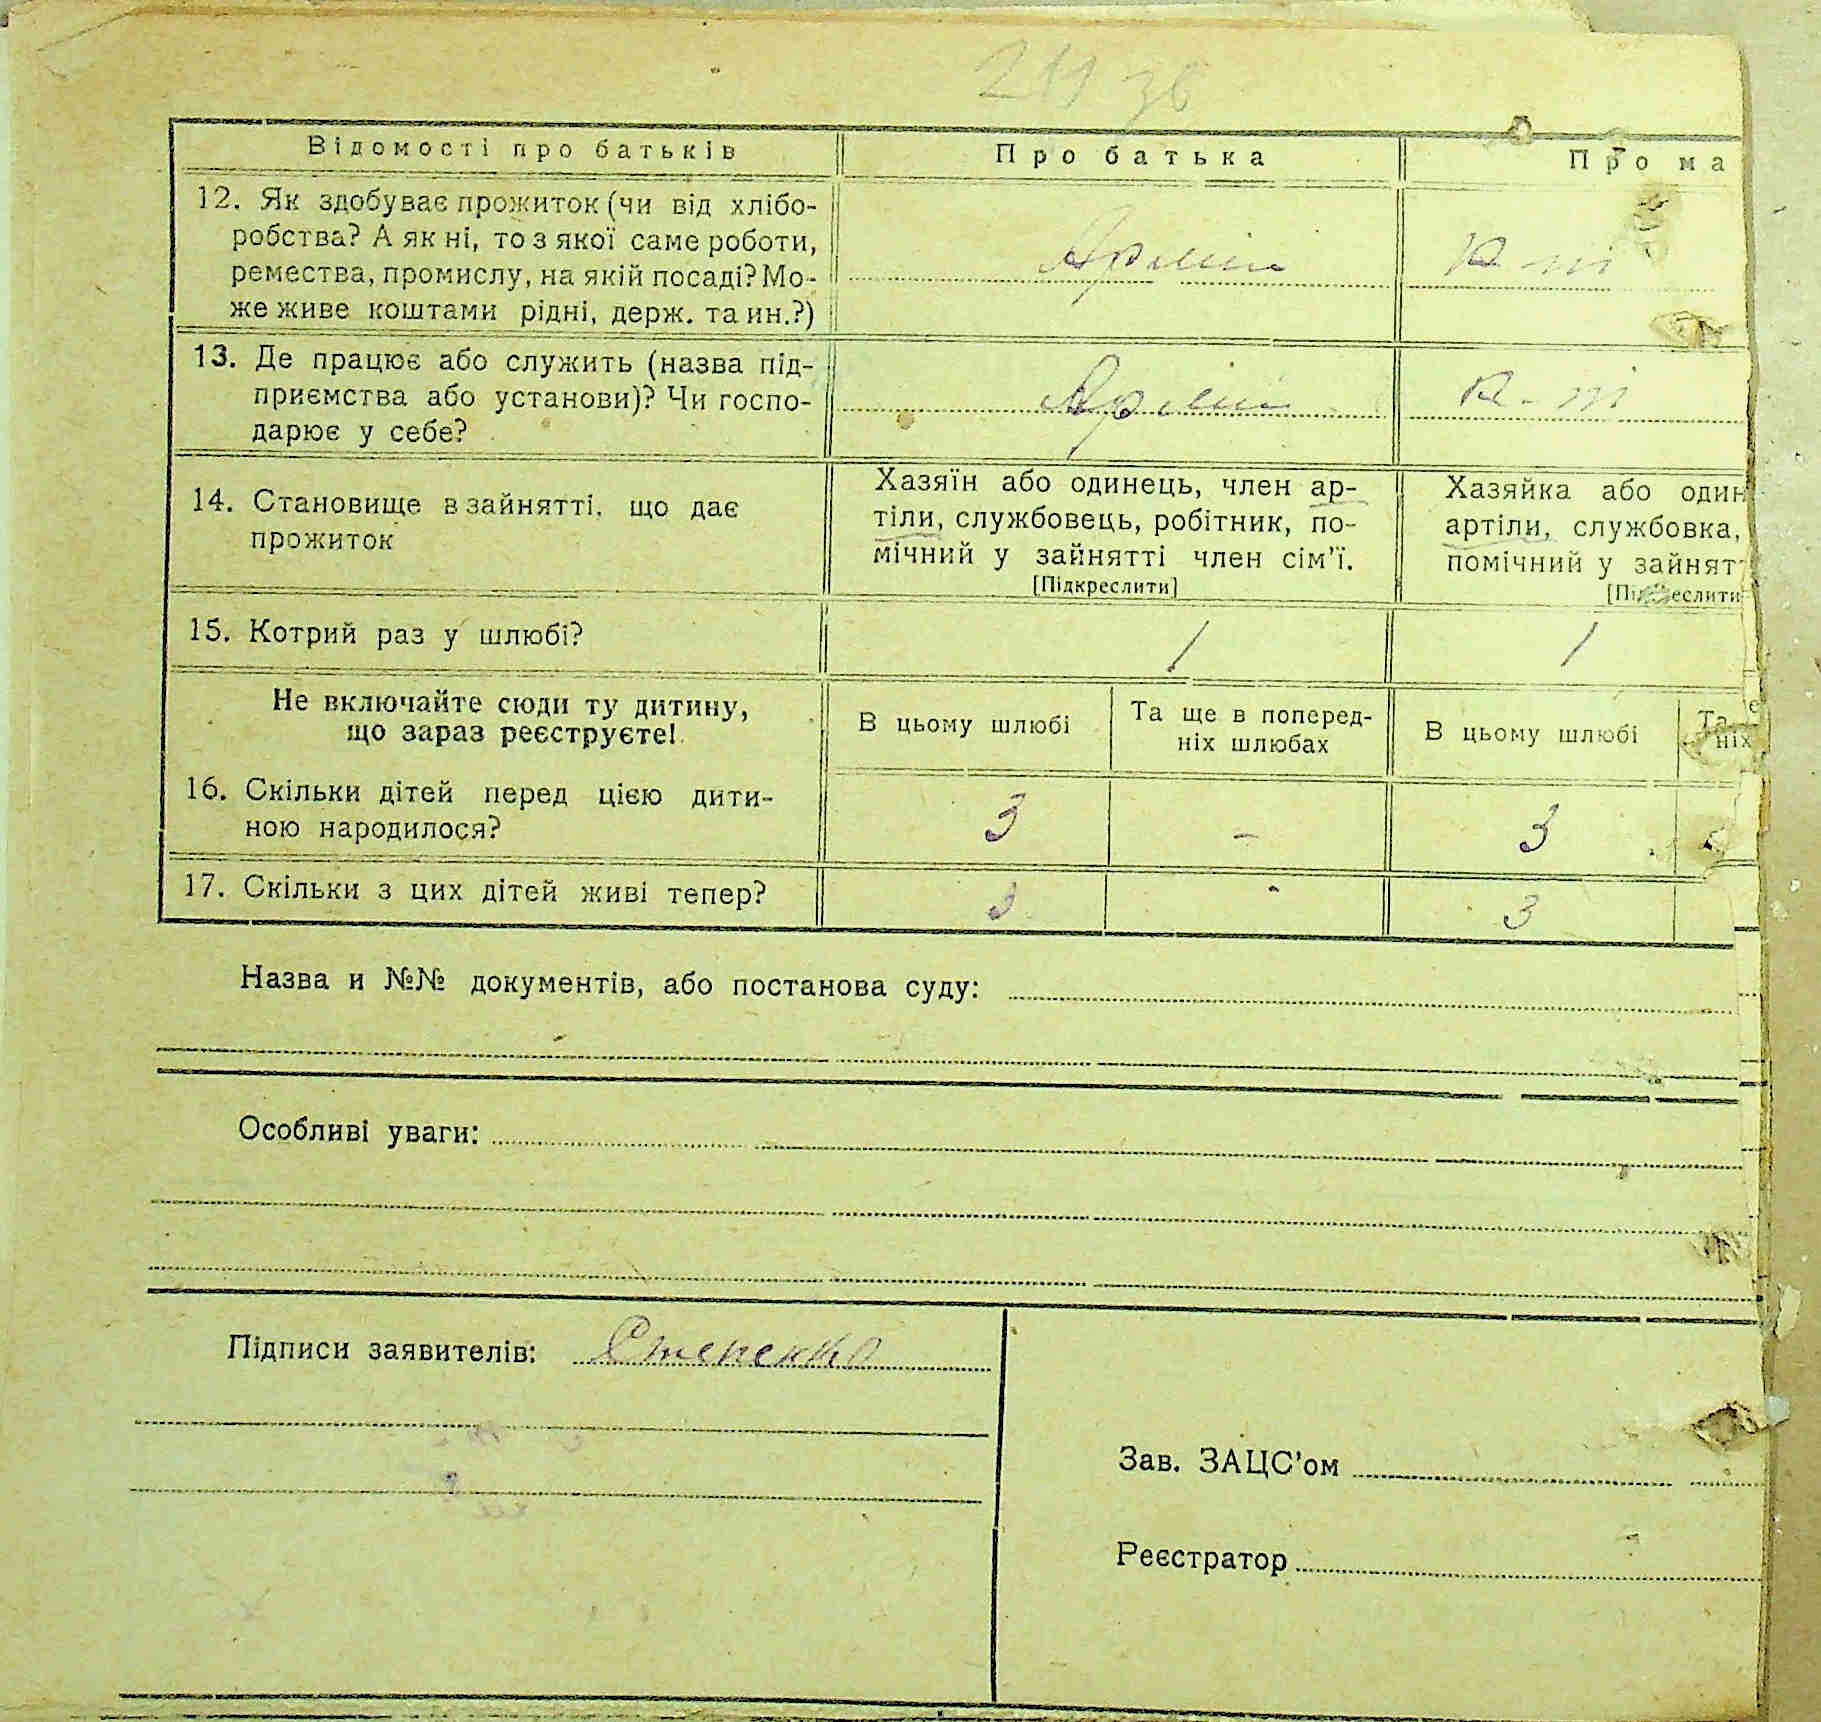 Відомості про батьків
Про батька
Про ма
12. Як здобуває прожиток (чи від хлібо-
робства? А як ні, то з якої саме роботи,
ремества, промислу, на якій посаді? Мо-
же живе коштами рідні, держ. та ин.?)
13. Де працює або служить (назва під-
приємства або установи)? Чи госпо-
дарює у себе?
14. Становище в зайнятті, що дає
прожиток
Хазяїн або одинець, член ар-
тіли, службовець, робітник, по-
мічний у зайнятті член сім'ї.
[Підкреслити]
Хазяйка або один
артіли, службовка,
помічний у зайнят
15. Котрий раз у шлюбі?
1
1
Не включайте сюди ту дитину,
що зараз реєструєте!
В цьому шлюбі
Та ще в поперед-
ніх шлюбах
В цьому шлюбі
Та
ніх
16. Скільки дітей перед цією дити-
ною народилося?
3
-
3
17. Скільки з цих дітей живі тепер?
3
-
3
Назва и №№ документів, або постанова суду:
Особливі уваги:
Підписи заявителів:
Зав. ЗАЦС'ом
Реєстратор